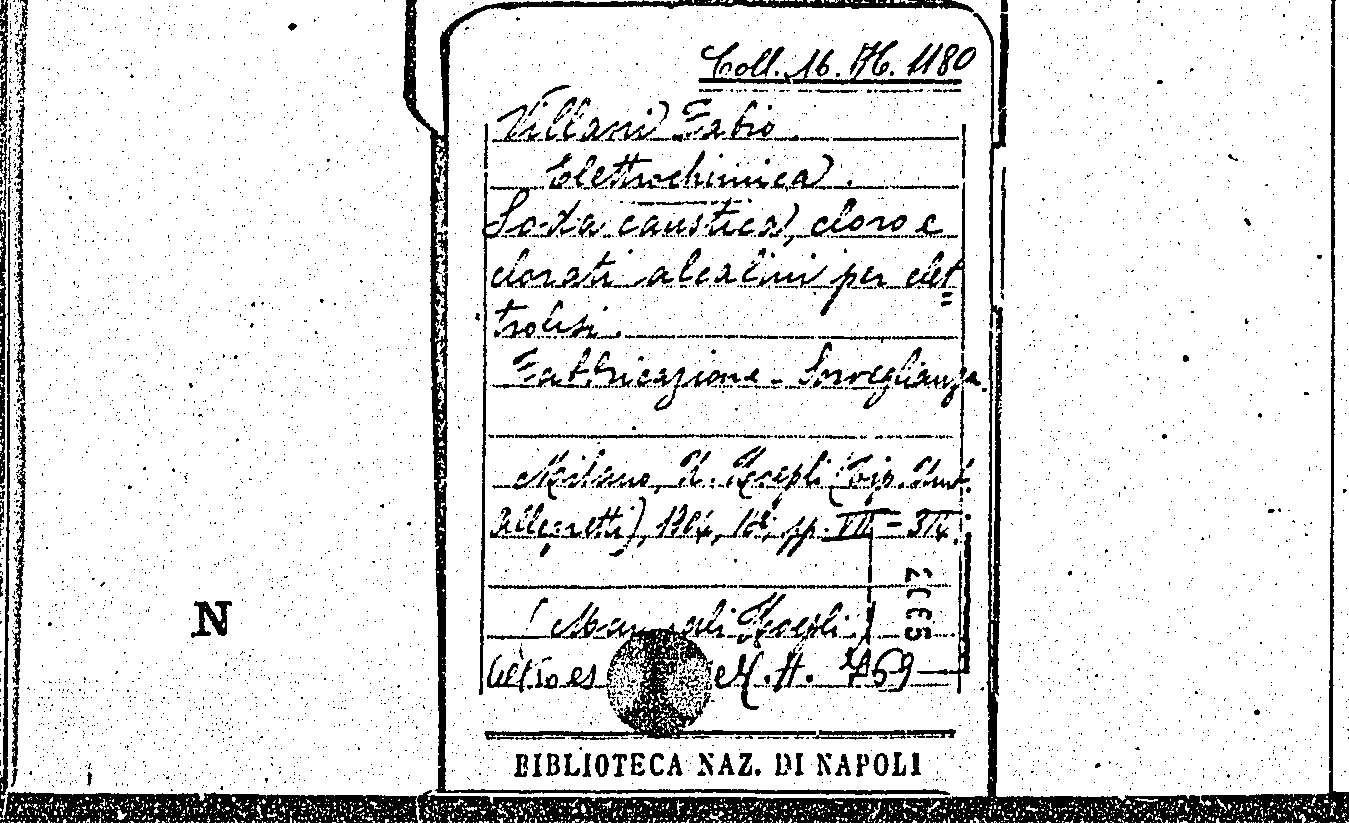 Coll. 16. H. 1180
Villani Fabio.
Elettrochimica.
Soda caustica, cloro e
clorati alcalini per elet=
trolisi.
Fabbricazione - Sorveglianza.
Milano, U. Hoepli (Tip. Umb.
Allegretti), 1904, 16°, pp. VIII-314.
(Manuali Hoepli)
Altro es M. H. 769
N
BIBLIOTECA NAZ. DI NAPOLI